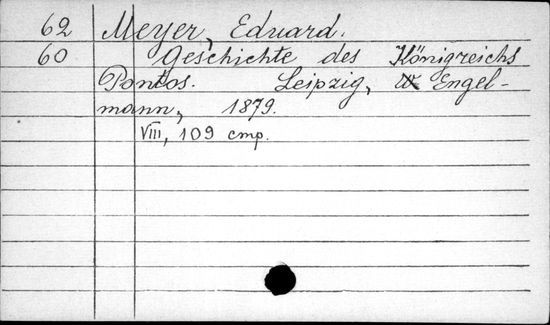 62 Meyer, Eduard.
60 Geschichte des Königreichs
Pontos. Leipzig, W Engel-
mann, 1879.
VIII, 109 стр.